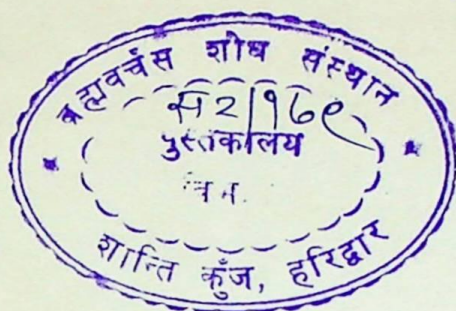 ब्रह्मवर्चस शोध संस्थान
पुस्तकालय
शान्ति कुँज, हरिद्वार